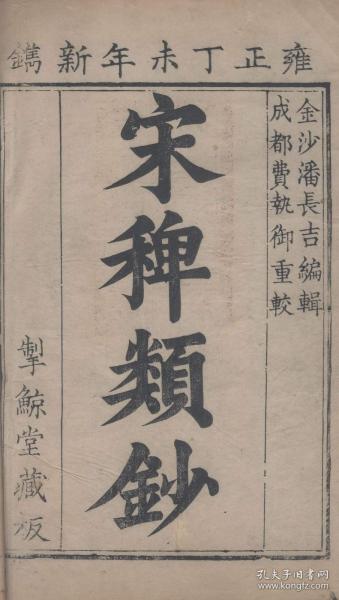 雍正丁未年新鐫
金沙潘長吉編輯
成都費執御重較
宋稗類鈔
掣鯨堂藏板
孔夫子旧书网